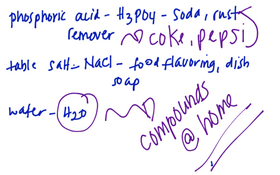 phosphoric acid - H3PO4 - soda, rust
remover → coke, pepsi
table salt - NaCl - food flavoring, dish
soap
water - H2O
compounds
@ home